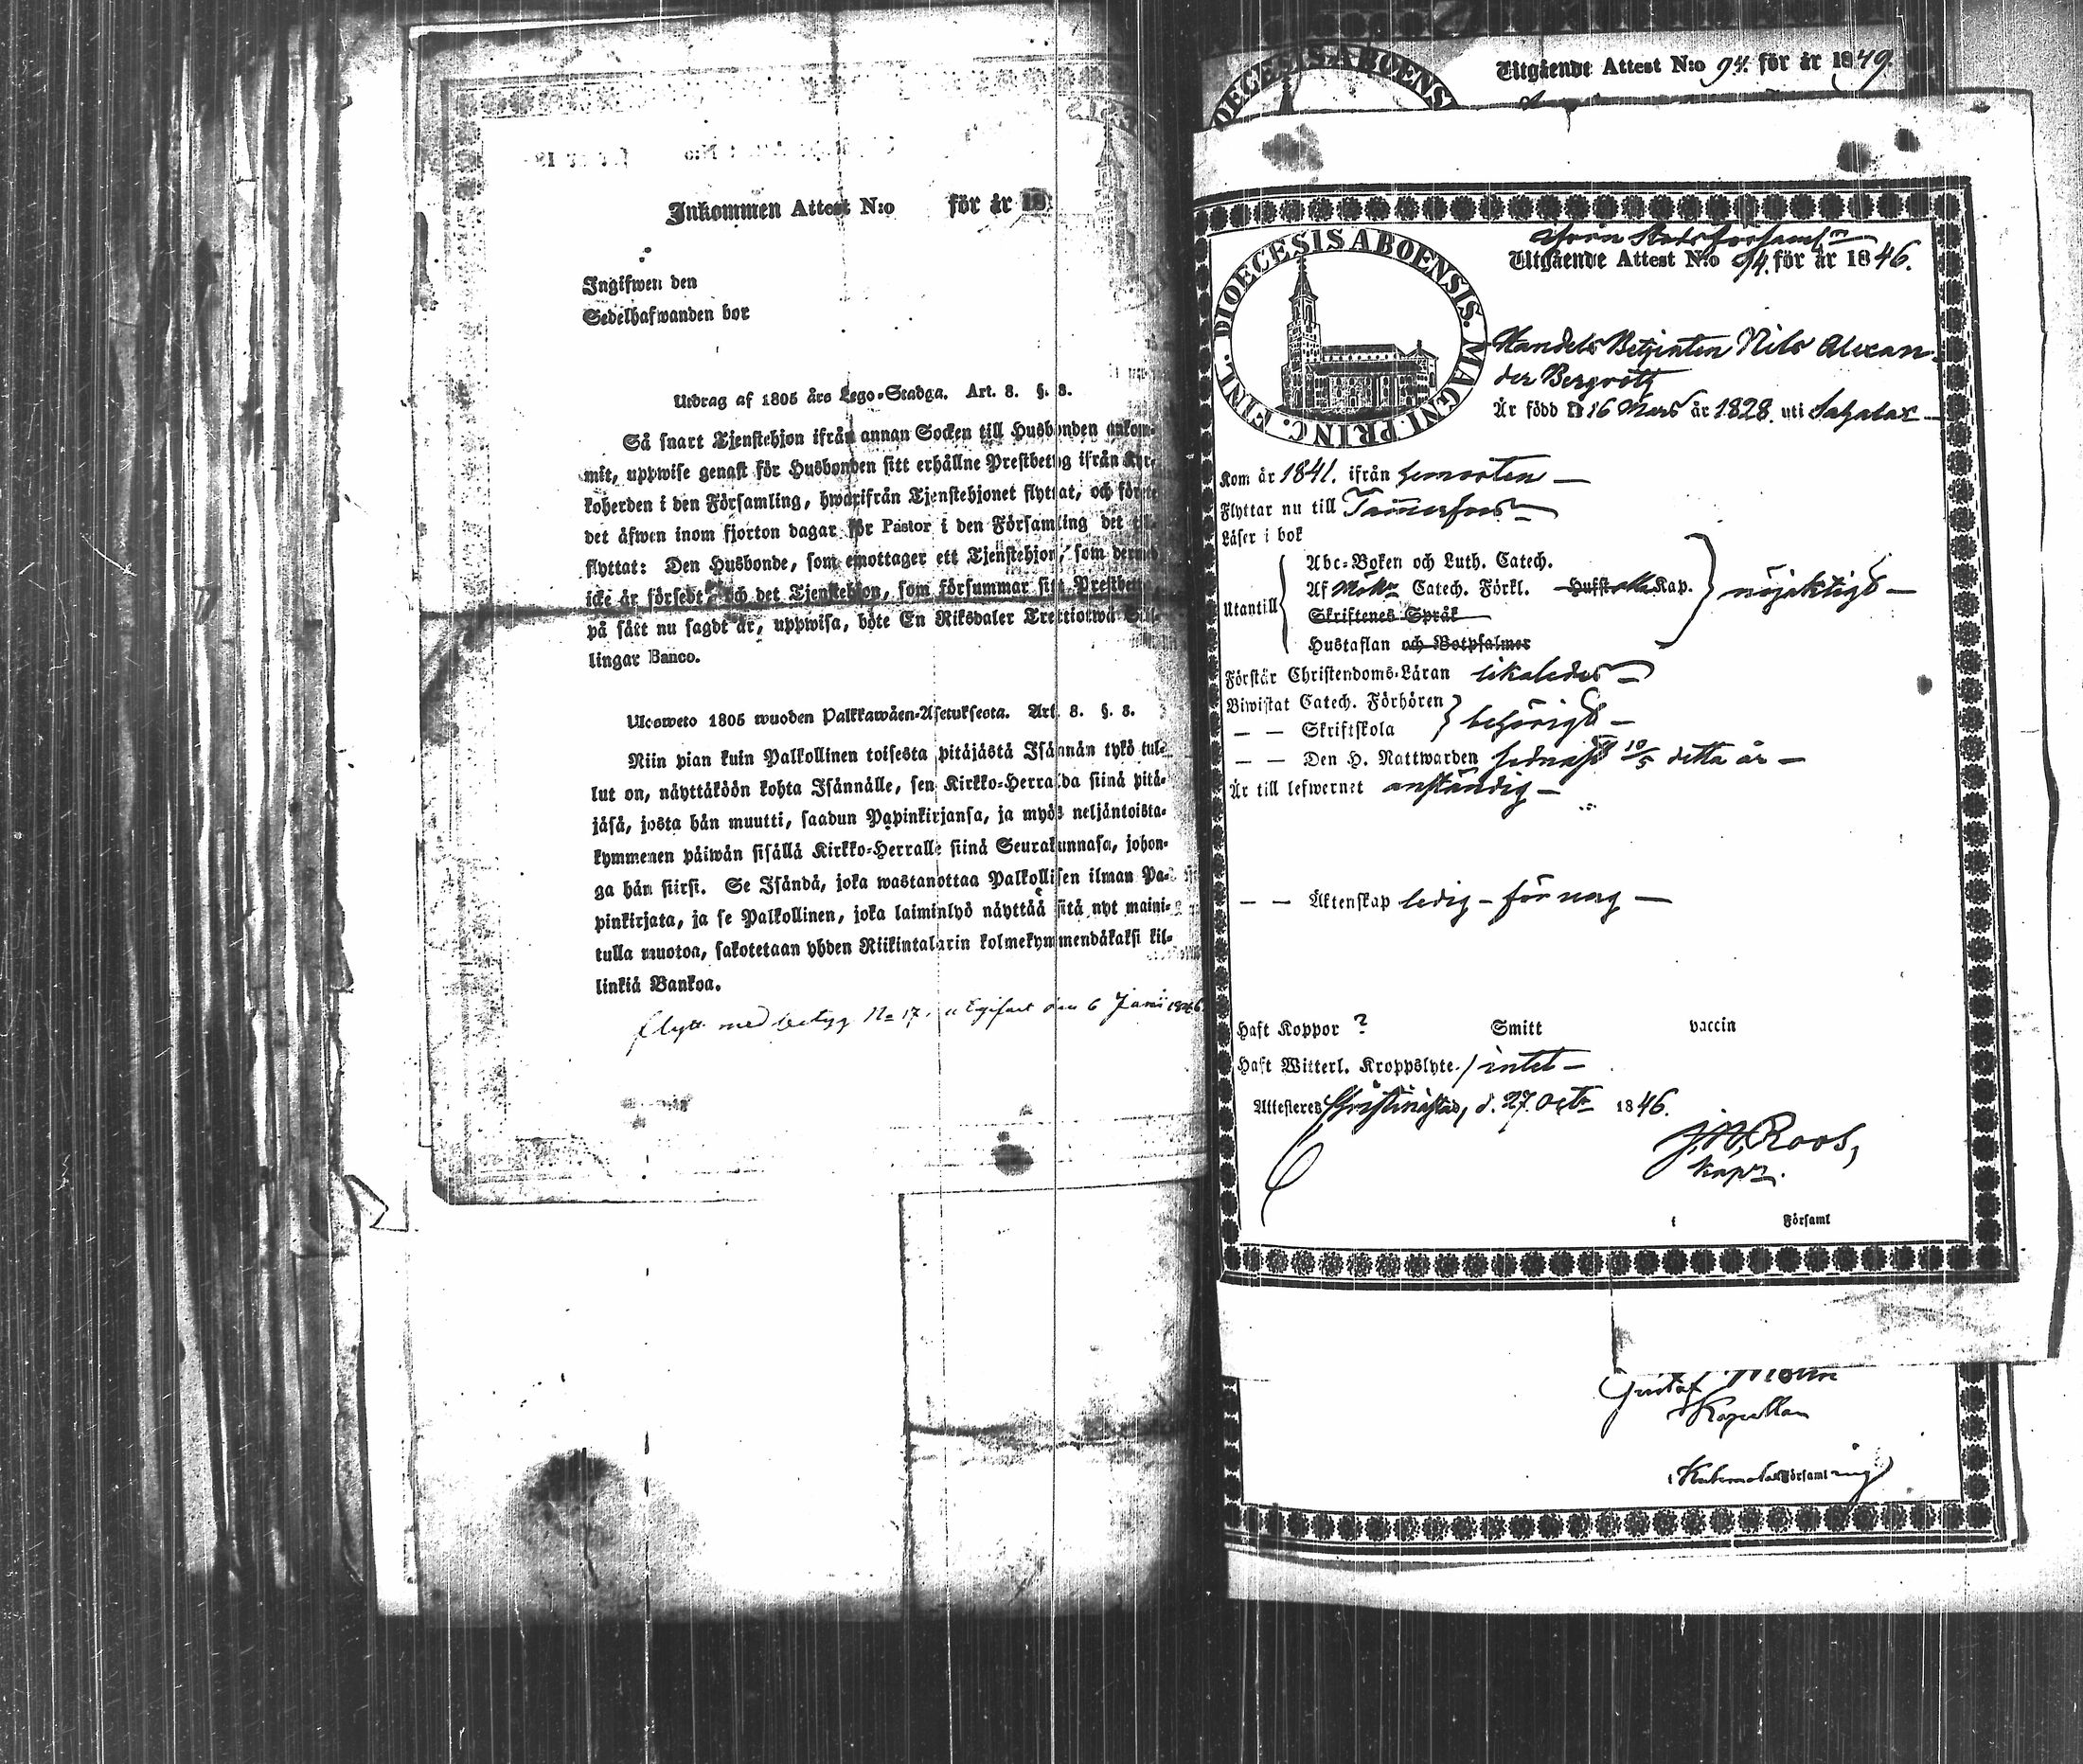 Inkommen Attest N:o för år 18
Ingifwen den
Sedelhafwanden bor
Utdrag af 1805 års Lego-Stadga. Art. 8. §. 8.
Så snart Tjenstehjon ifrån annan Socken till Husbonden ankom-
mit, uppwise genast för Husbonden sitt erhållne Prestbetyg ifrån Kyr-
koherden i den Församling, hwarifrån Tjenstehjonet flyttat, och förete
det äfwen inom fjorton dagar för Pastor i den Församling det till-
flyttat: Den Husbonde, som emottager ett Tjenstehjon, som dermed
icke är försedt, och det Tjenstehjon, som försummar sitt Prestbetyg,
på sätt nu sagdt är, uppwisa, böte En Riksdaler Trettiotwå Skil-
lingar Banco.
Ulosweto 1805 wuoden Palkkawäen-Asetuksesta. Art. 8. §. 8.
Niin pian kuin Palkollinen toisesta pitäjästä Isännän tykö tul-
lut on, näyttäköön kohta Isännälle, sen Kirkko-Herralda siinä pitä-
jäsä, josta hän muutti, saadun Papinkirjansa, ja myös neljäntoista-
kymmenen päiwän sisällä Kirkko-Herralle siinä Seurakunnasa, johon-
ga hän siirsi. Se Isändä, joka wastanottaa Palkollisen ilman Pa-
pinkirjata, ja se Palkollinen, joka laiminlyö näyttää sitä nyt maini-
tulla muotoa, sakotetaan yhden Riikintalarin kolmekymmendäkaksi kil-
linkiä Bankoa.
flytt med betyg No 17. den 6 Juni 1846
DIOECESIS ABOENS
Utgående Attest N:o 94. för år 1849.
DIOECESIS ABOENSIS. MAGNI. PRINC. FINL.
Utgående Attest N:o 94. för år 1846.
Handels Betjenten Nils Alexan-
der Bergroth
Är född d 16 Mars år 1828. uti
Kom år 1841. ifrån hemorten
Flyttar nu till Tammerfors
Läser i bok
Abc-Boken och Luth. Catech.
Utantill Af Catech. Förkl. Kap. nöjaktigt
Skriftenes Språk
Hustaflan och Botpsalmer
Förstår Christendoms-Läran likaledes
Biwistat Catech. Förhören
behörigt
— — Skriftskola
— — Den H. Nattwarden sednast 10/5 detta år
Är till lefwernet anständig
— — Äktenskap ledig - för mig
Haft Koppor ? Smitt vaccin
Haft Witterl. Kroppslyte. intet
Attesteres Christinestad, d. 27. Octr 1846.
J. W. Roos,
Kapn.
i Församl
Gustaf
Kapellan
i Församling